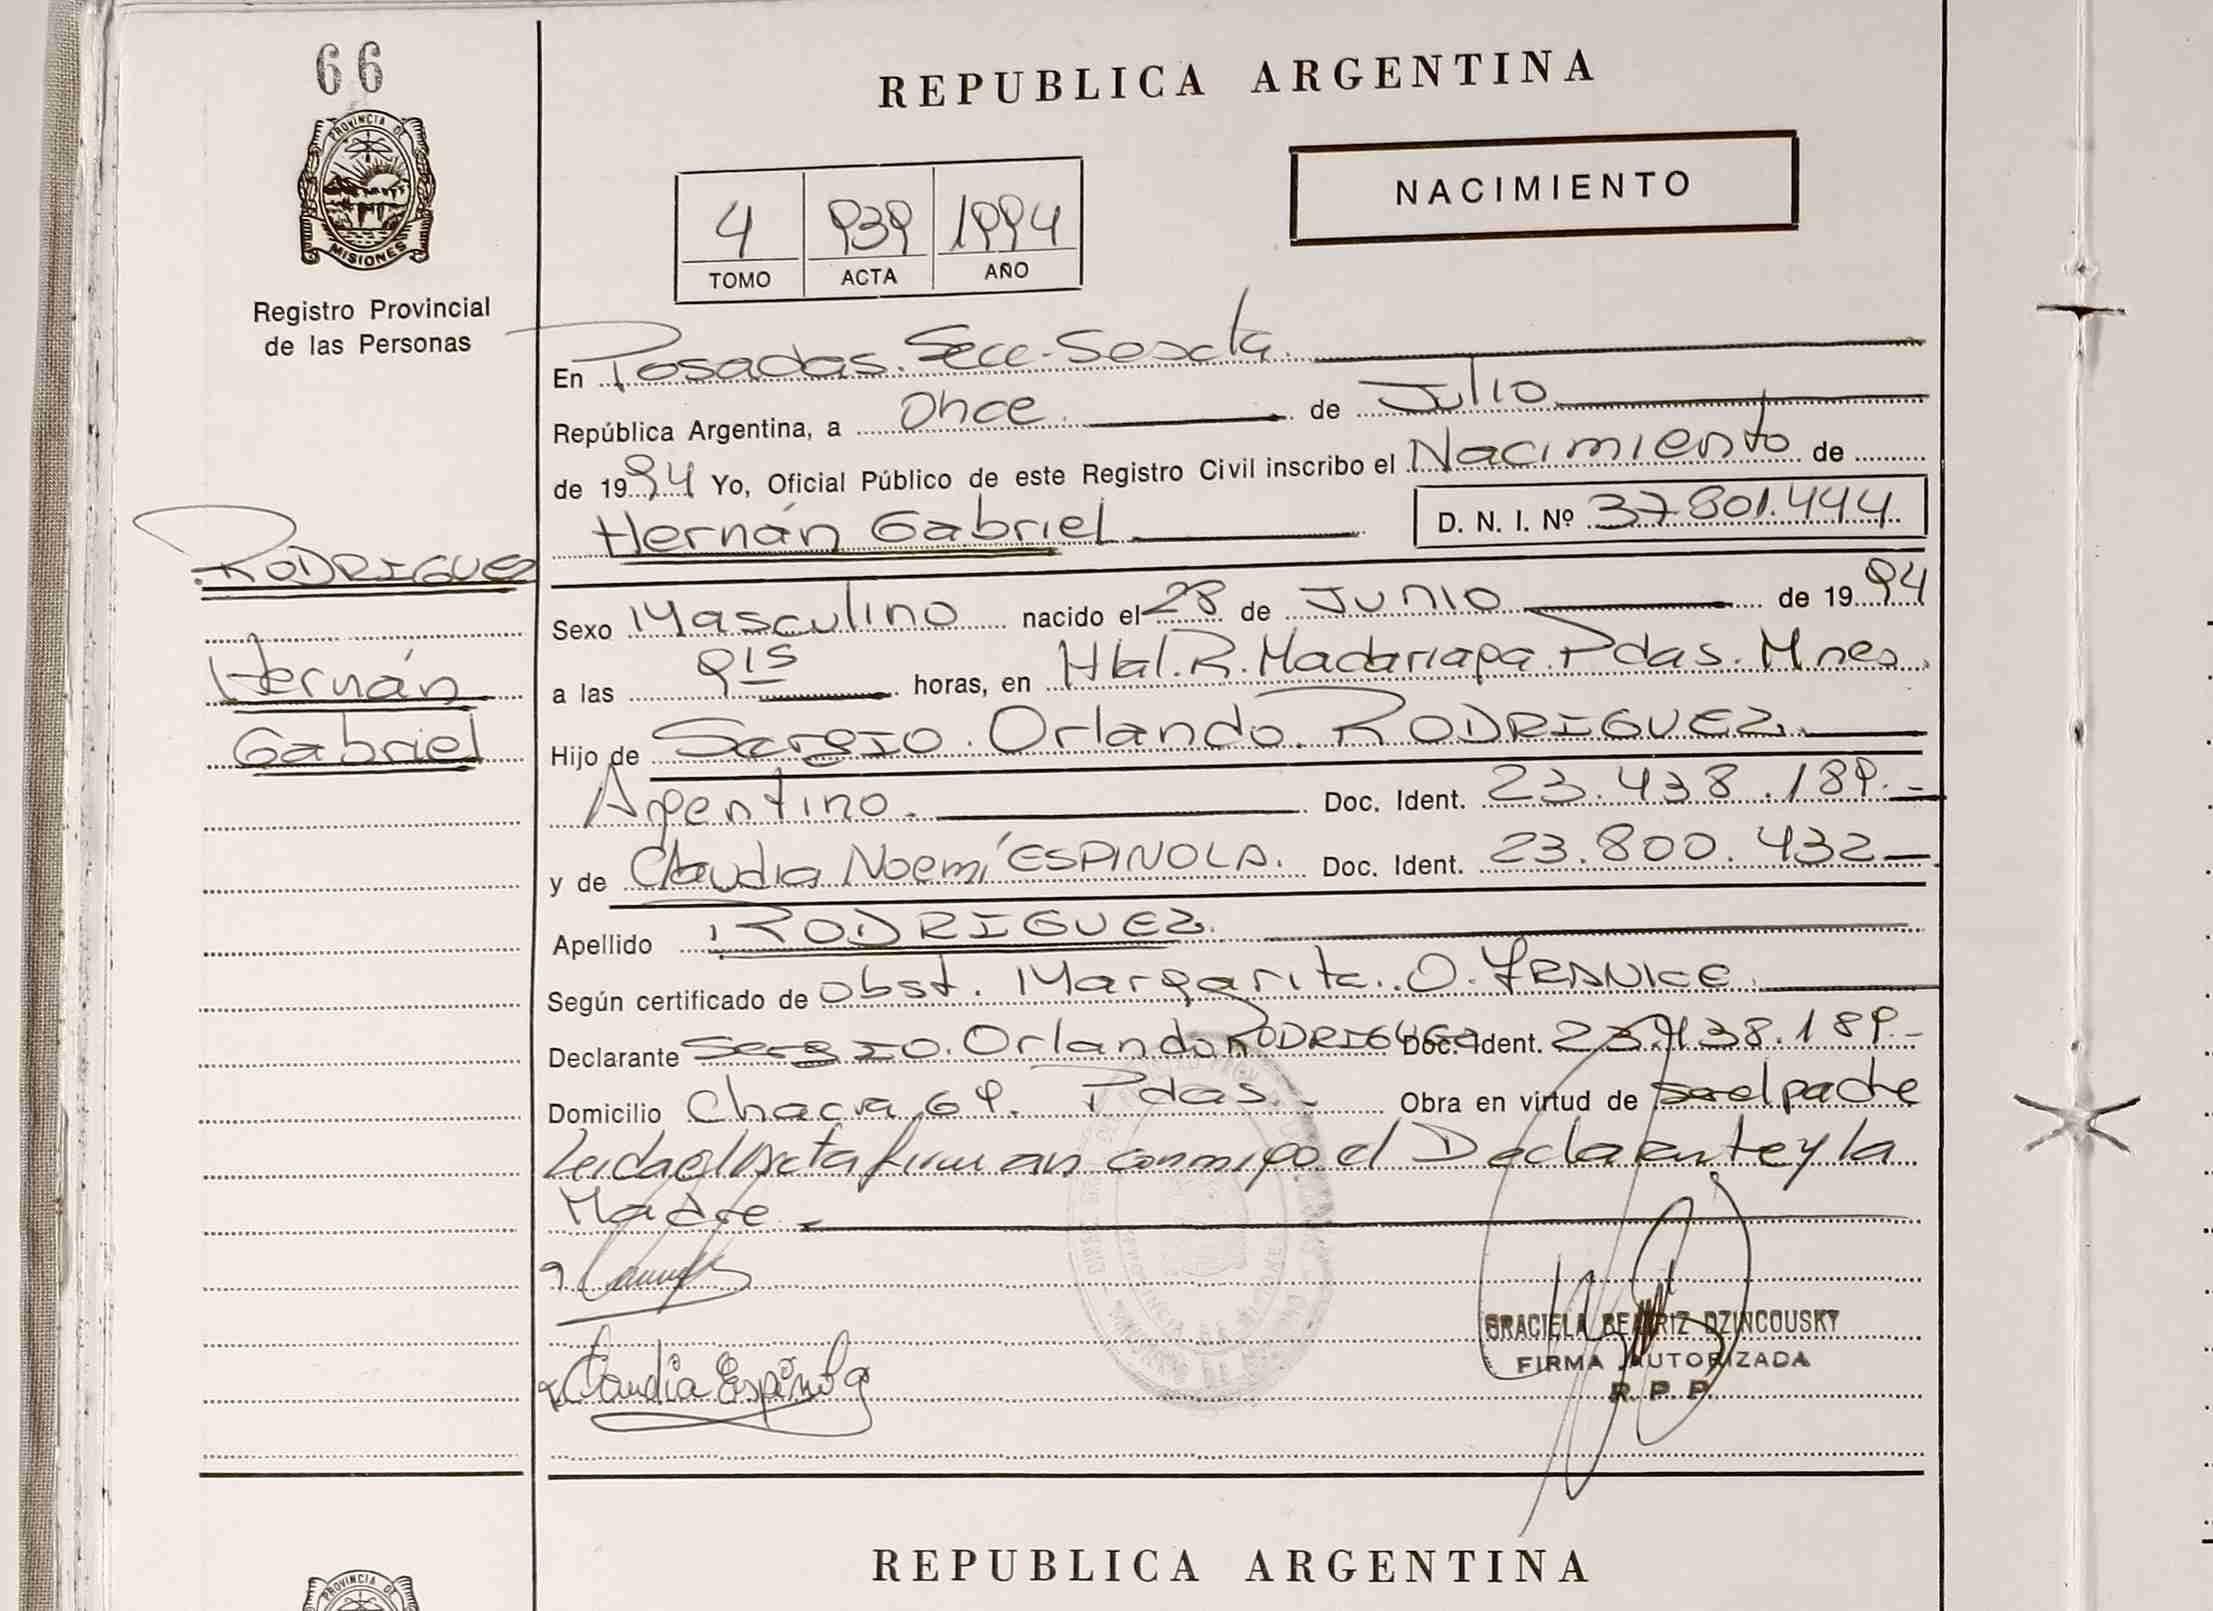 66
PROVINCIA DE
MISIONES
Registro Provincial
de las Personas
REPUBLICA ARGENTINA
NACIMIENTO
4 939 1994
TOMO ACTA AÑO
En Posadas. Secc. Sexta.
República Argentina, a Once de Julio
de 1994 Yo, Oficial Público de este Registro Civil inscribo el Nacimiento de
Hernán Gabriel D. N. I. Nº 37.801.444
RODRIGUEZ
Hernán
Gabriel
Sexo Masculino nacido el 28 de Junio de 1994
a las 9 15 horas, en Htal. R. Madariaga. Pdas. Mnes.
Hijo de Sergio Orlando RODRIGUEZ.
Argentino. Doc. Ident. 23.438.189.-
y de Claudia Noemí ESPINOLA. Doc. Ident. 23.800.432-
Apellido RODRIGUEZ.
Según certificado de obst. Margarita O.
Declarante Sergio Orlando RODRIGUEZ Doc. Ident. 23.438.189.-
Domicilio Chacra 69. Pdas.- Obra en virtud de ser el padre
Leida el Acta firman conmigo el Declarante y la
Madre.
Claudia Espinola
GRACIELA BEATRIZ DZINCOUSKY
FIRMA AUTORIZADA
R. P. P.
REPUBLICA ARGENTINA
PROVINCIA DE